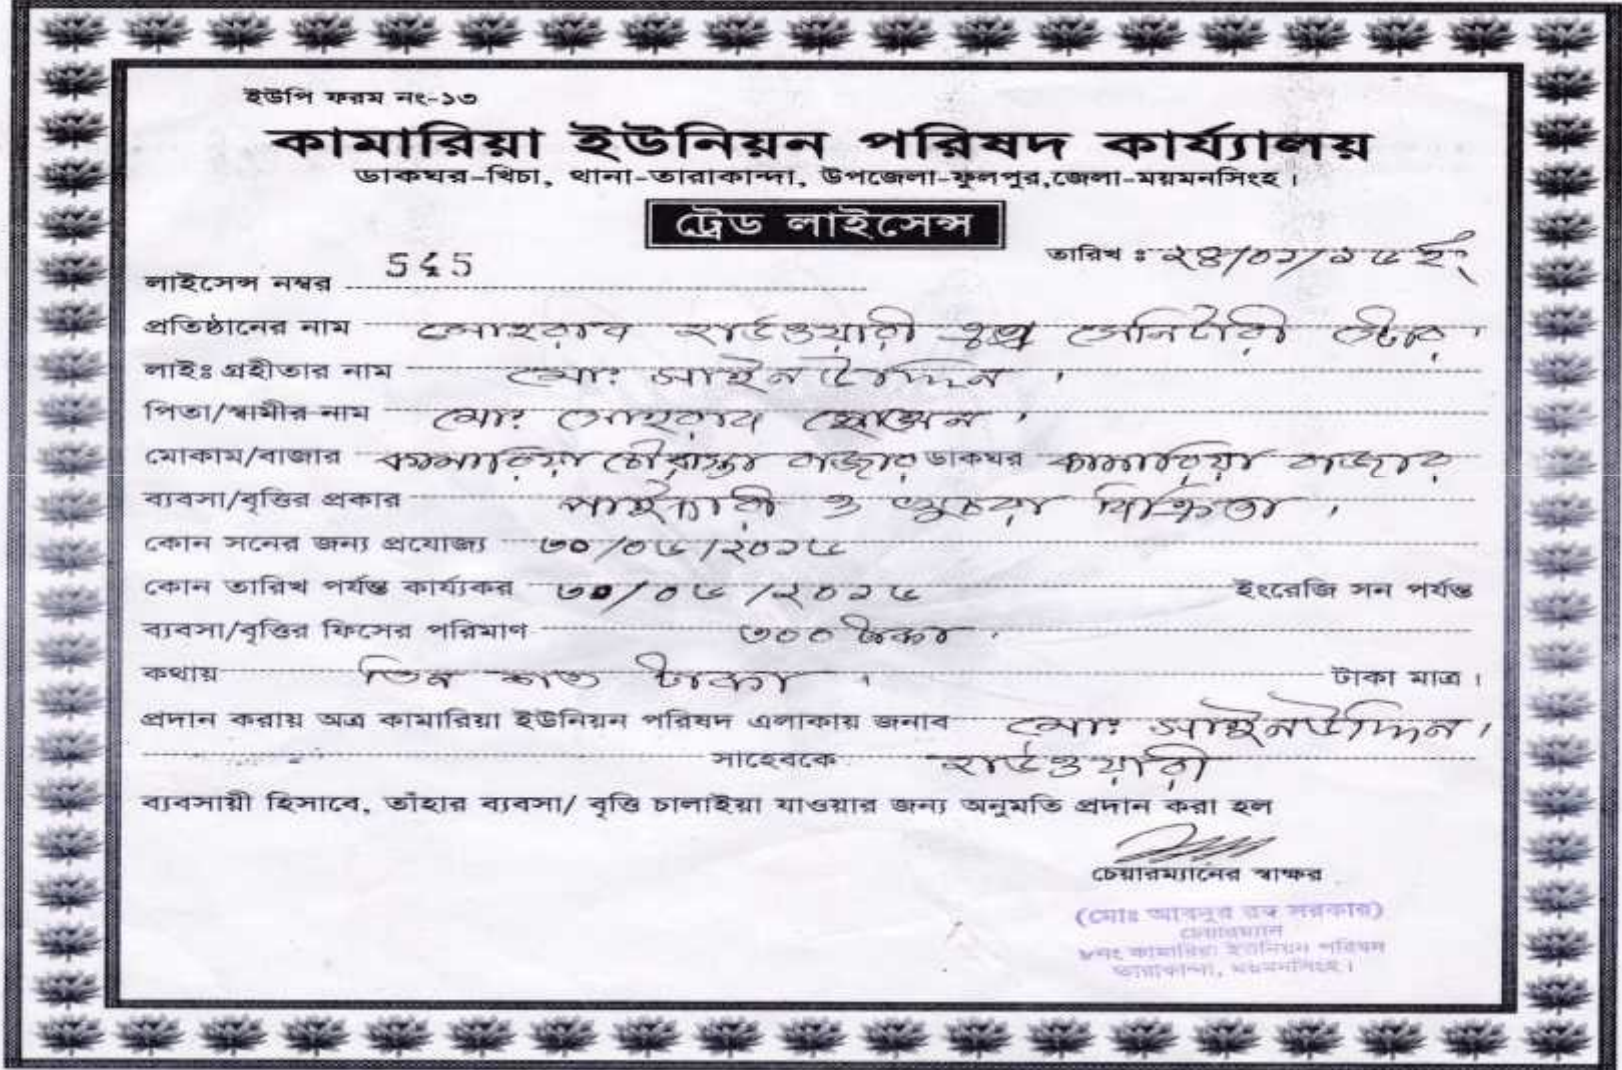 ইউপি ফরম নং-১৩
কামারিয়া ইউনিয়ন পরিষদ কার্য্যালয়
ডাকঘর-খিচা, থানা-তারাকান্দা, উপজেলা-ফুলপুর,জেলা-ময়মনসিংহ।
ট্রেড লাইসেন্স
তারিখ ঃ ২৪/০১/১৬ইং
লাইসেন্স নম্বর 545
প্রতিষ্ঠানের নাম সোহরাব হার্ডওয়ারী এন্ড সেনিটারী ষ্টোর।
লাইঃ গ্রহীতার নাম মোঃ সাইন উদ্দিন।
পিতা/স্বামীর নাম মোঃ সোহরাব হোসেন।
মোকাম/বাজার কামারিয়া চৌরাস্তা বাজার ডাকঘর কামারিয়া বাজার
ব্যবসা/বৃত্তির প্রকার পাইকারী ও খুচরা বিক্রিতা।
কোন সনের জন্য প্রযোজ্য ৩০/০৬/২০১৬
কোন তারিখ পর্যন্ত কার্য্যকর ৩০/০৬/২০১৬ ইংরেজি সন পর্যন্ত
ব্যবসা/বৃত্তির ফিসের পরিমাণ ৩০০ টাকা।
কথায় তিন শত টাকা। টাকা মাত্র।
প্রদান করায় অত্র কামারিয়া ইউনিয়ন পরিষদ এলাকায় জনাব মোঃ সাইনউদ্দিন।
সাহেবকে হার্ডওয়ারী
ব্যবসায়ী হিসাবে, তাঁহার ব্যবসা/ বৃত্তি চালাইয়া যাওয়ার জন্য অনুমতি প্রদান করা হল
চেয়ারম্যানের স্বাক্ষর
(মোঃ আবদুর রব সরকার)
চেয়ারম্যান
৮নং কামারিয়া ইউনিয়ন পরিষদ
তারাকান্দা, ময়মনসিংহ।